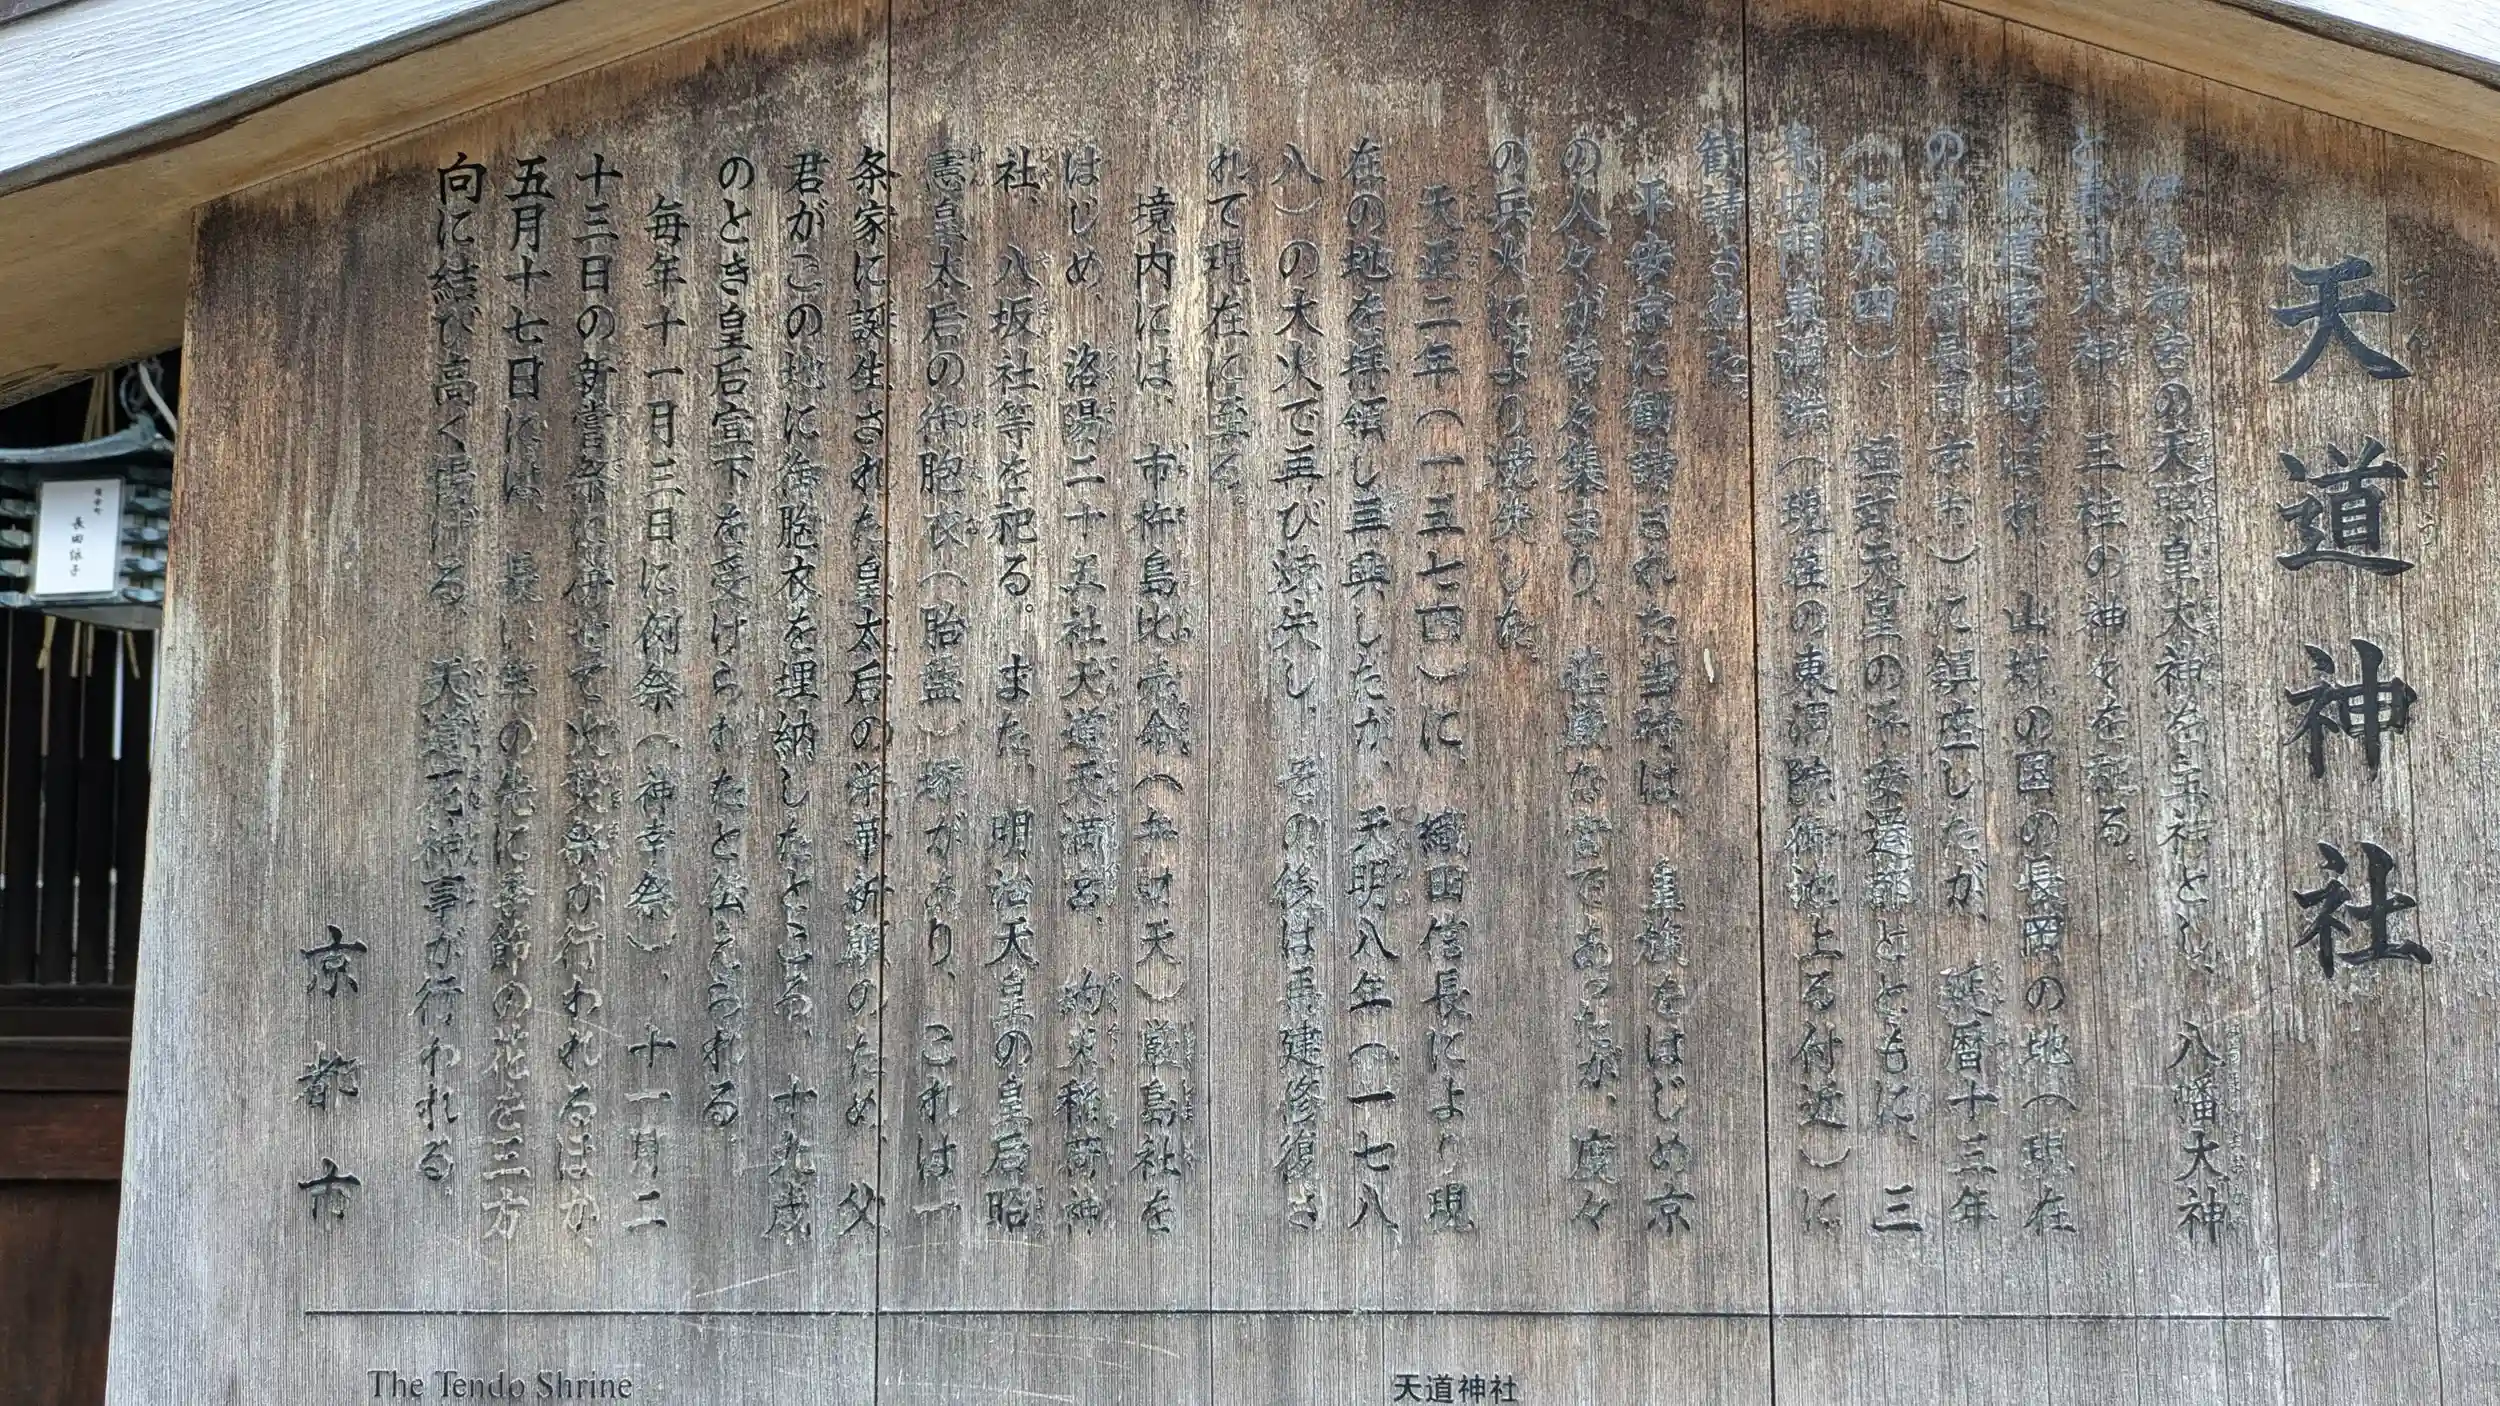 天道神社
伊勢神宮の天照皇大神を主神とし、八幡大神
と春日大神、三柱の神々を祀る。
天道宮と呼ばれ、山城の国の長岡の地(現在
の京都府長岡京市)に鎮座したが、延暦十三年
(七九四)、桓武天皇の平安遷都とともに、三
条坊門東洞院(現在の東洞院御池上る付近)に
勧請された。
平安京に勧請された当時は、皇族をはじめ京
の人々が常々集まり、荘厳な宮であったが、度々
の兵火により焼失した。
天正二年(一五七四)に、織田信長により現
在の地を拝領し再興したが、天明八年(一七八
八)の大火で再び焼失し、その後は再建修復さ
れて現在に至る。
境内には、市杵島比売命(弁財天)厳島社を
はじめ、洛陽二十五社天道天満宮、約束稲荷神
社、八坂社等を祀る。また、明治天皇の皇后昭
憲皇太后の御胞衣(胎盤)塚があり、これは一
条家に誕生された皇太后の栄華祈願のため、父
君がこの地に御胞衣を埋納したところ、十九歳
のとき皇后宣下を受けられたと伝えられる。
毎年十一月三日に例祭(神幸祭)、十一月二
十三日の新嘗祭に併せて火焚祭が行われるほか、
五月十七日には、長い竿の先に季節の花を三方
向に結び高く掲げる、天道花神事が行われる。
京都市
The Tendo Shrine
天道神社
長田依子